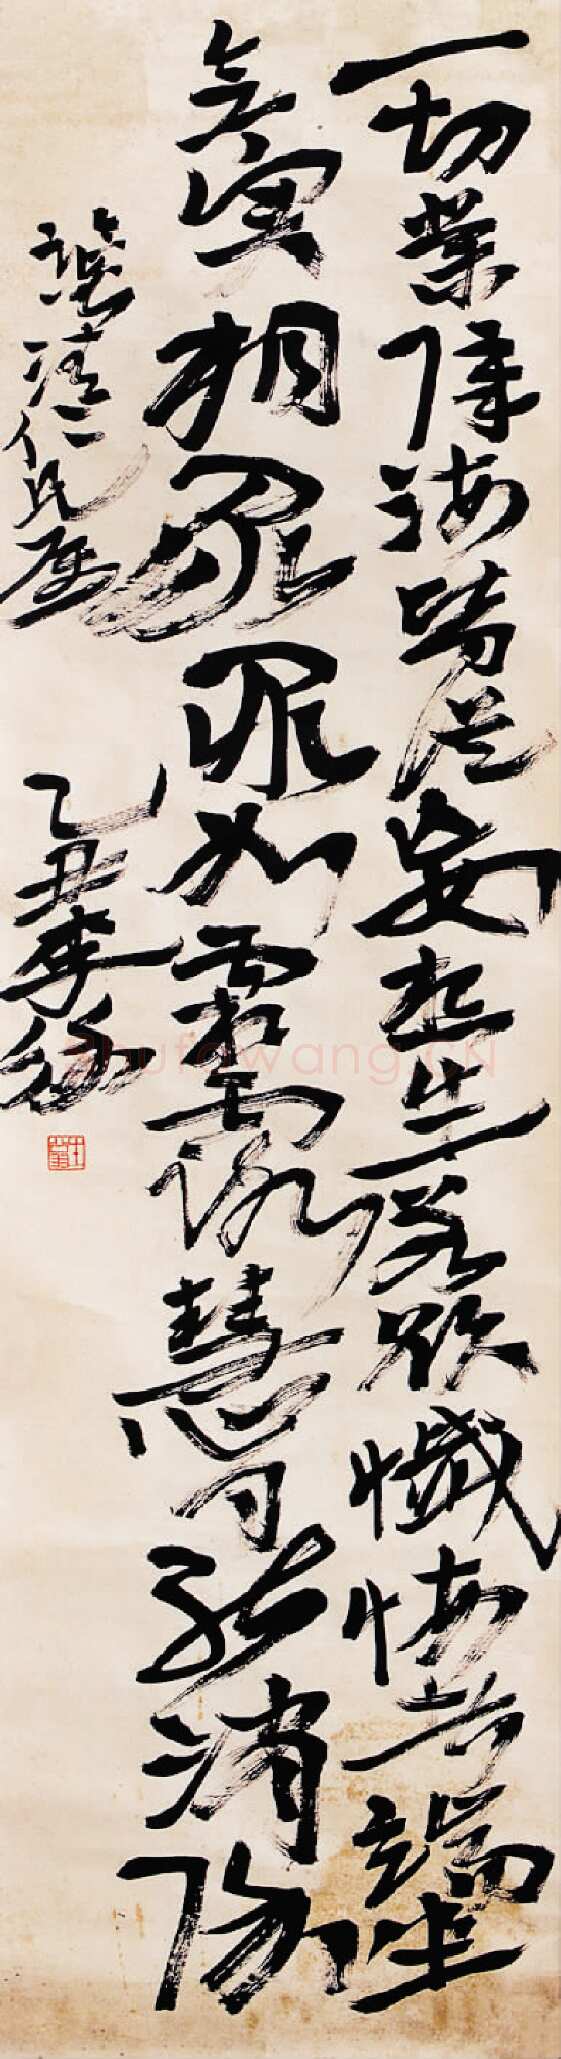 一切業障海皆從妄想生若欲懺悔者端坐
念實相眾罪如霜露慧日能消除
仁兄属
乙丑
Shufawang.CN